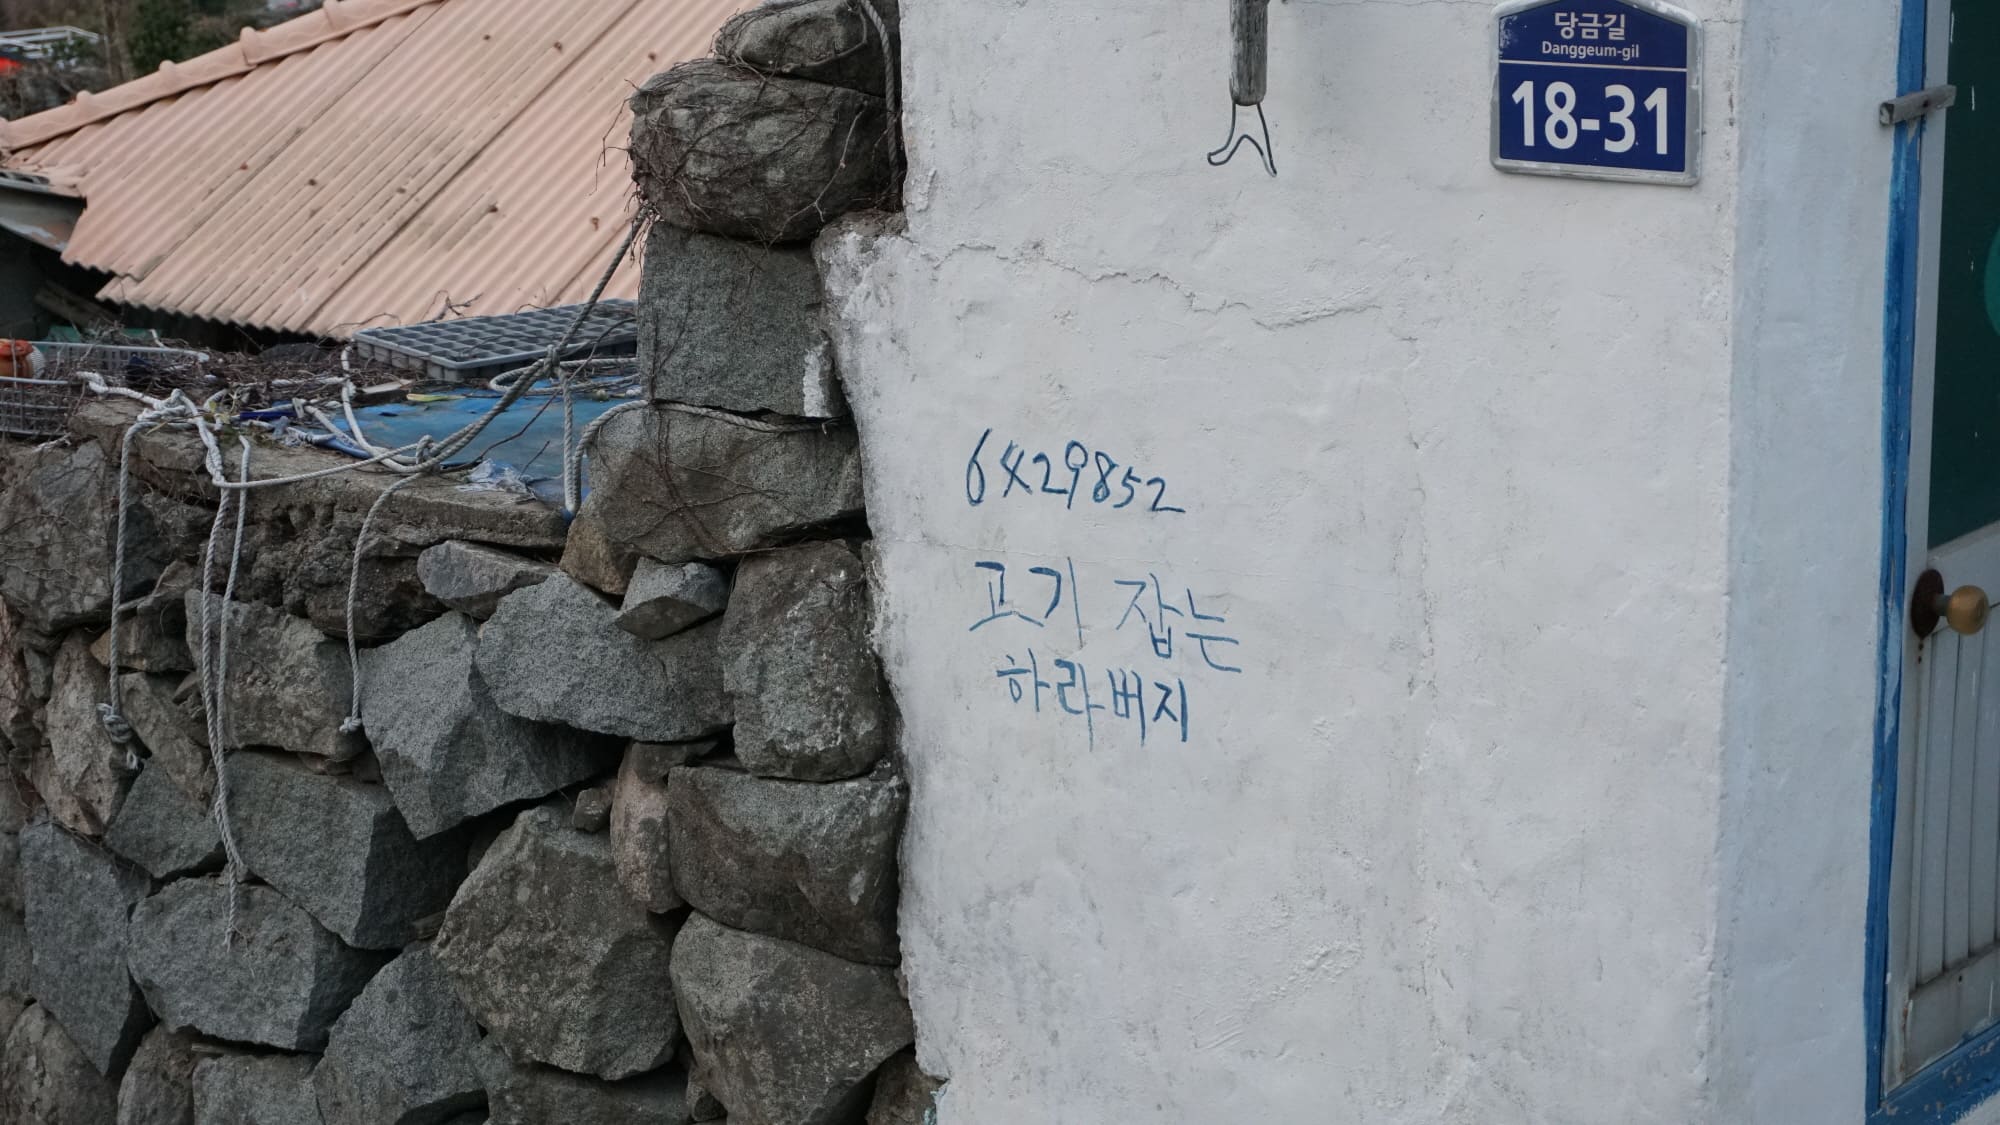 당금길
Danggeum-gil
18-31
6429852
고기 잡는
하라버지